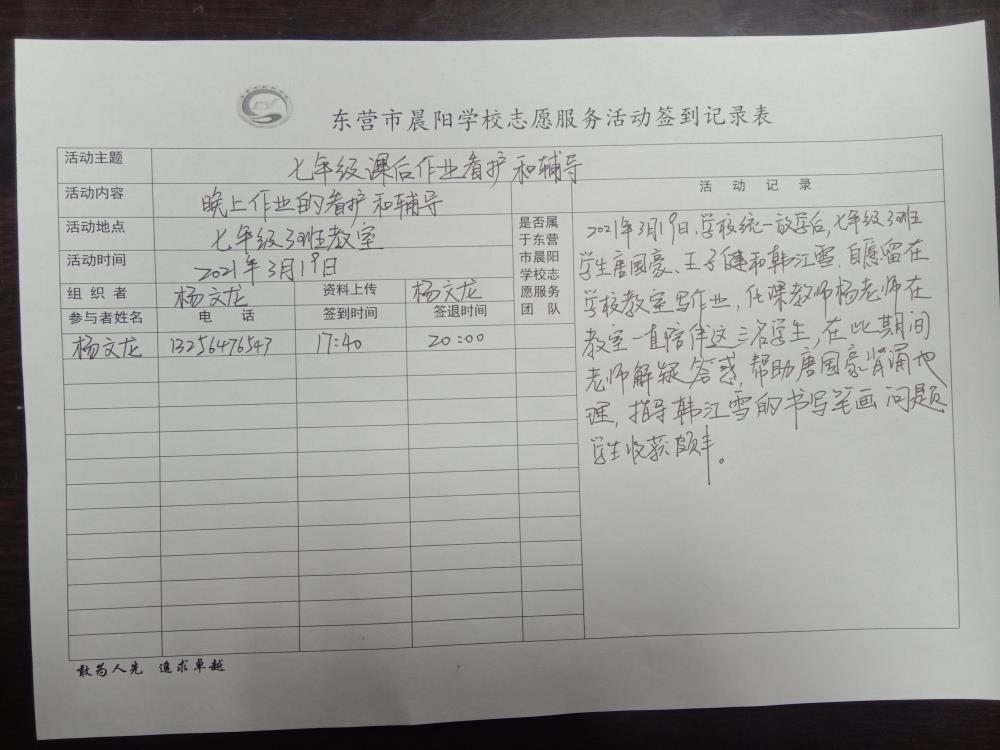 东营市晨阳学校志愿服务活动签到记录表
活动主题 七年级课后作业看护和辅导
活动内容 晚上作业的看护和辅导
活动地点 七年级3班教室
活动时间 2021年3月19日
组织者 杨文龙 资料上传 杨文龙
参与者姓名 电话 签到时间 签退时间
杨文龙 13256476543 17:40 20:00
是否属
于东营
市晨阳
学校志
愿服务
团队
活动记录
2021年3月19日,学校统一放学后,七年级3班
学生唐国豪、王子健和韩江雪,自愿留在
学校教室写作业,任课教师杨老师在
教室一直陪伴这三名学生,在此期间
老师解疑答惑,帮助唐国豪背诵地
理,指导韩江雪的书写笔画问题
学生收获颇丰。
敢为人先 追求卓越